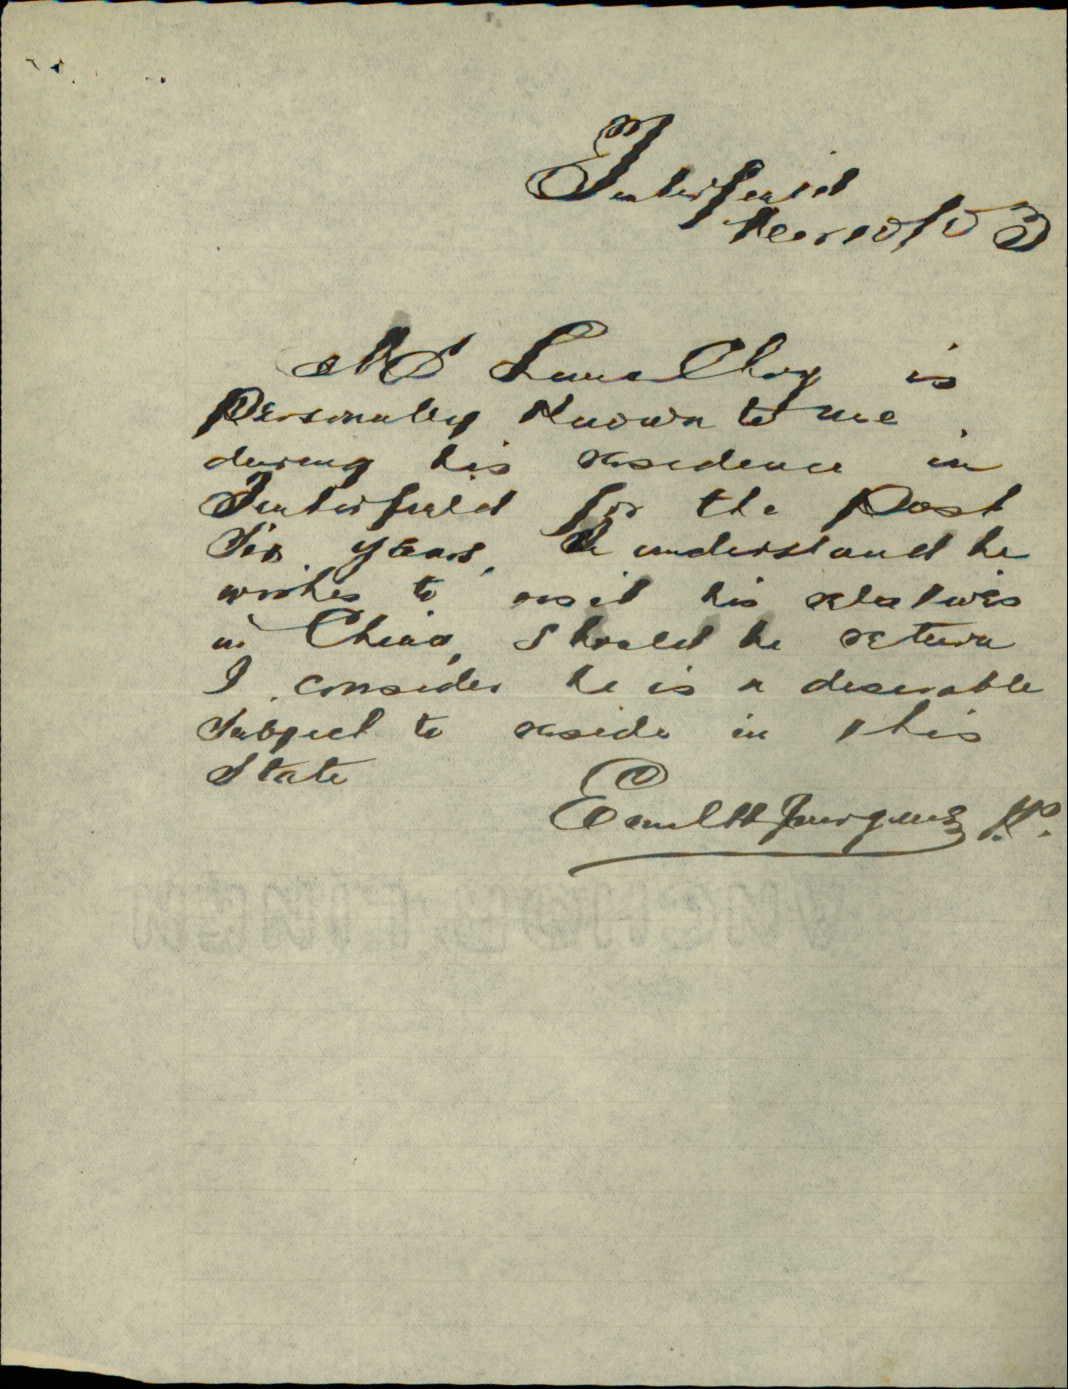 Tenterfield
Mr Lum Choy is
Personally Known to me
during his residence in
Tenterfield for the Past
Six years, I understand he
wishes to visit his relatives
in China, Should he return
I consider he is a desirable
Subject to reside in this
State
Emil H Jurgens J.P.